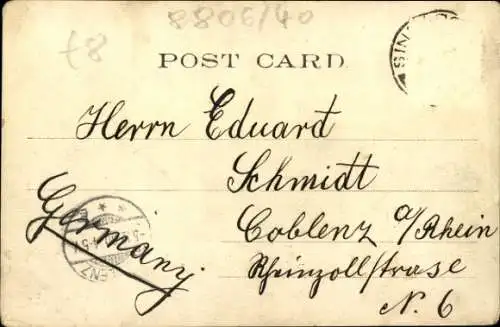 8806/40
£8
SIN
POST CARD
Herrn Eduard
Schmidt
Coblenz a/Rhein
Rheinzollstrasse
N. 6
Germany